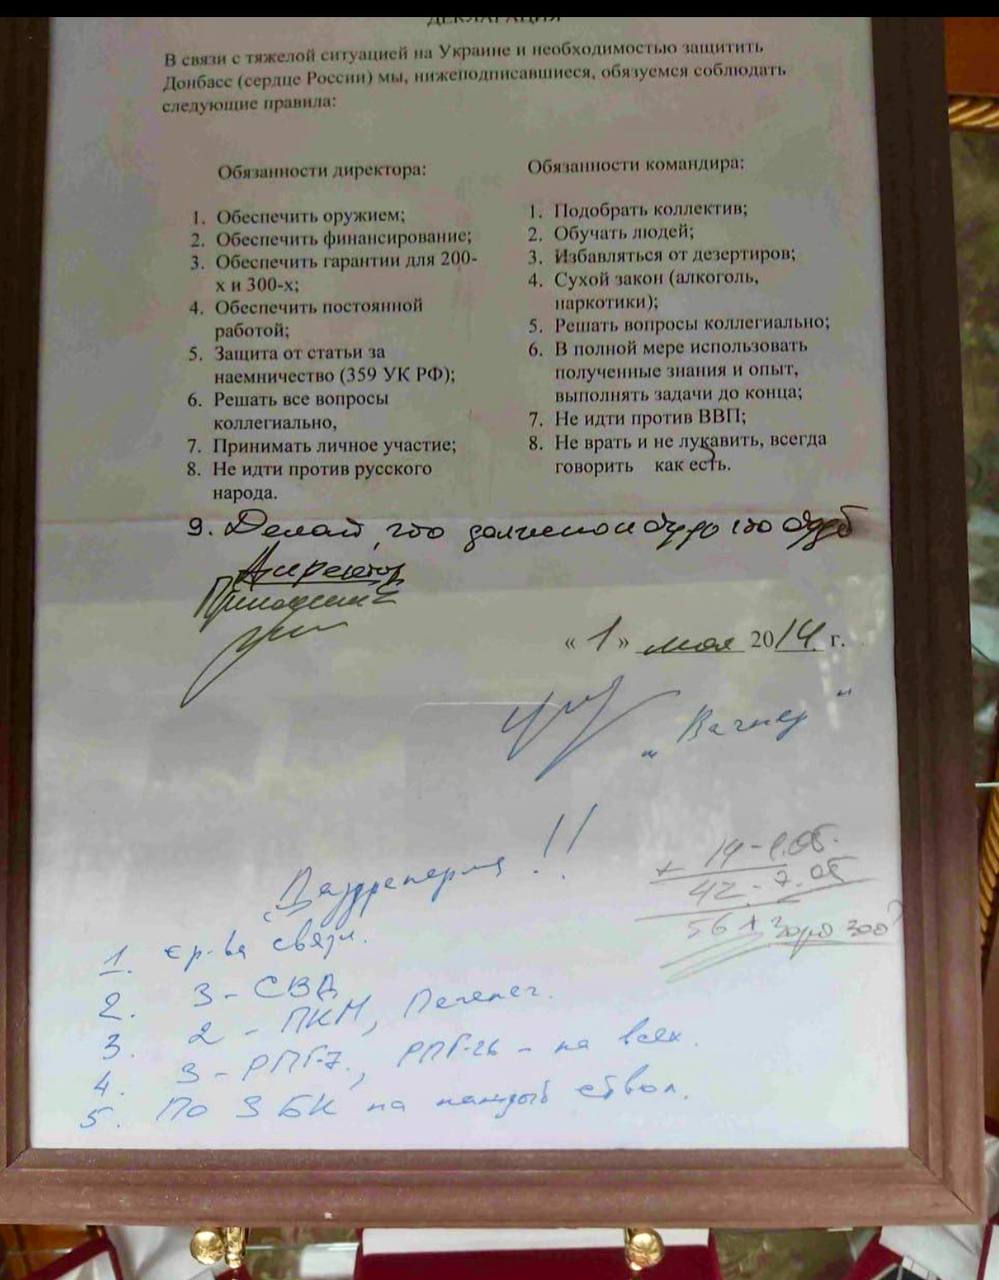 ДЕКЛАРАЦИЯ
В связи с тяжелой ситуацией на Украине и необходимостью защитить
Донбасс (сердце России) мы, нижеподписавшиеся, обязуемся соблюдать
следующие правила:
Обязанности директора:
1. Обеспечить оружием;
2. Обеспечить финансирование;
3. Обеспечить гарантии для 200-
х и 300-х;
4. Обеспечить постоянной
работой;
5. Защита от статьи за
наемничество (359 УК РФ);
6. Решать все вопросы
коллегиально,
7. Принимать личное участие;
8. Не идти против русского
народа.
Обязанности командира:
1. Подобрать коллектив;
2. Обучать людей;
3. Избавляться от дезертиров;
4. Сухой закон (алкоголь,
наркотики);
5. Решать вопросы коллегиально;
6. В полной мере использовать
полученные знания и опыт,
выполнять задачи до конца;
7. Не идти против ВВП;
8. Не врать и не лукавить, всегда
говорить как есть.
9. Делай, что должно и будь что будет
Директор
Пригожин
« 1 » мая 2014 г.
„ Вагнер "
!!
1. ср-ва связи.
2. 3 - СВД
3. 2 - ПКМ, Печенег.
4. 3 - РПГ-7, РПГ-26 - на всех.
5. По 3 БК на каждый ствол.
+ 14 - 1.05.
42 - 7.05
56